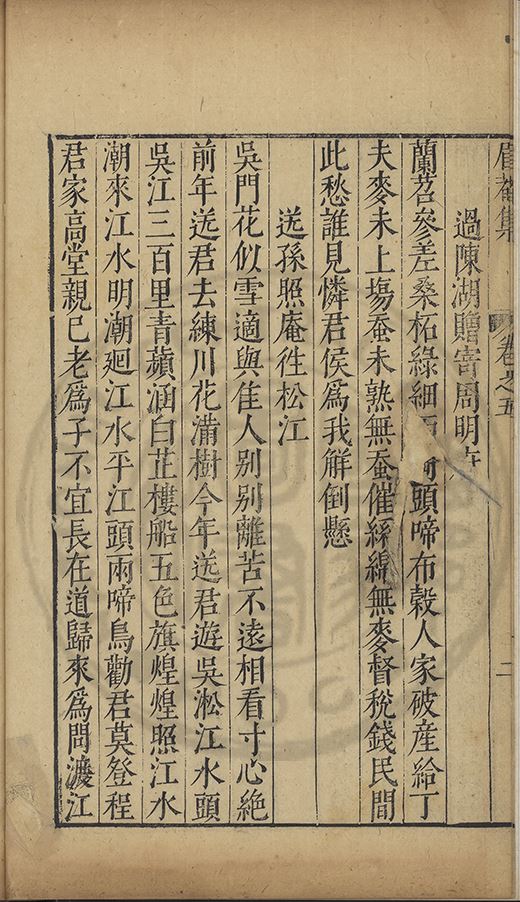 眉菴集 卷之五 二
過陳湖贈寄周明
蘭苕參差桑柘綠細頭啼布穀人家破産給丁
夫麥未上塲蚕未熟無蚕催絲綿無麥督稅錢民間
此愁誰見憐君侯爲我解倒懸
送孫照庵徃松江
吳門花似雪適與佳人别别離苦不遠相看寸心絶
前年送君去練川花滿樹今年送君遊吳淞江水頭
吳江三百里青蘋涵白芷樓船五色旗煌煌照江水
潮來江水明潮廻江水平江頭雨啼鳥勸君莫登程
君家高堂親已老爲子不宜長在道歸來爲問渡江